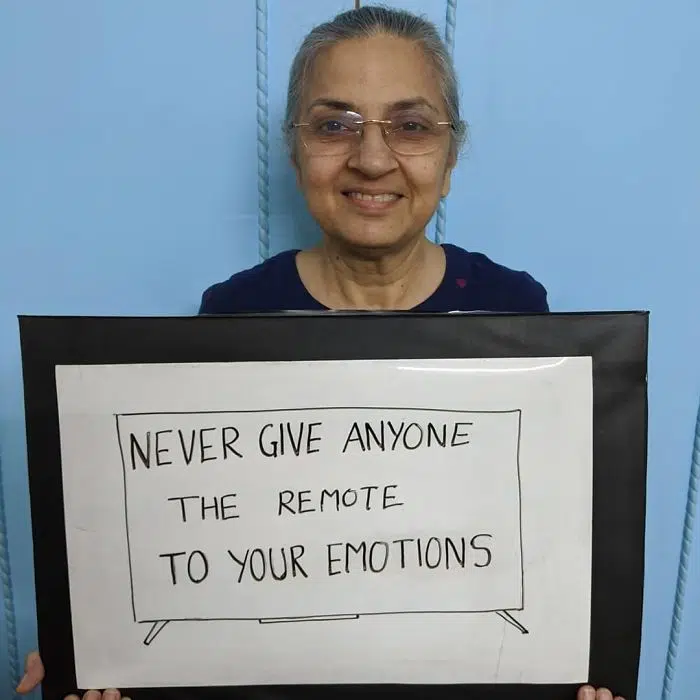 NEVER GIVE ANYONE
THE REMOTE
TO YOUR EMOTIONS